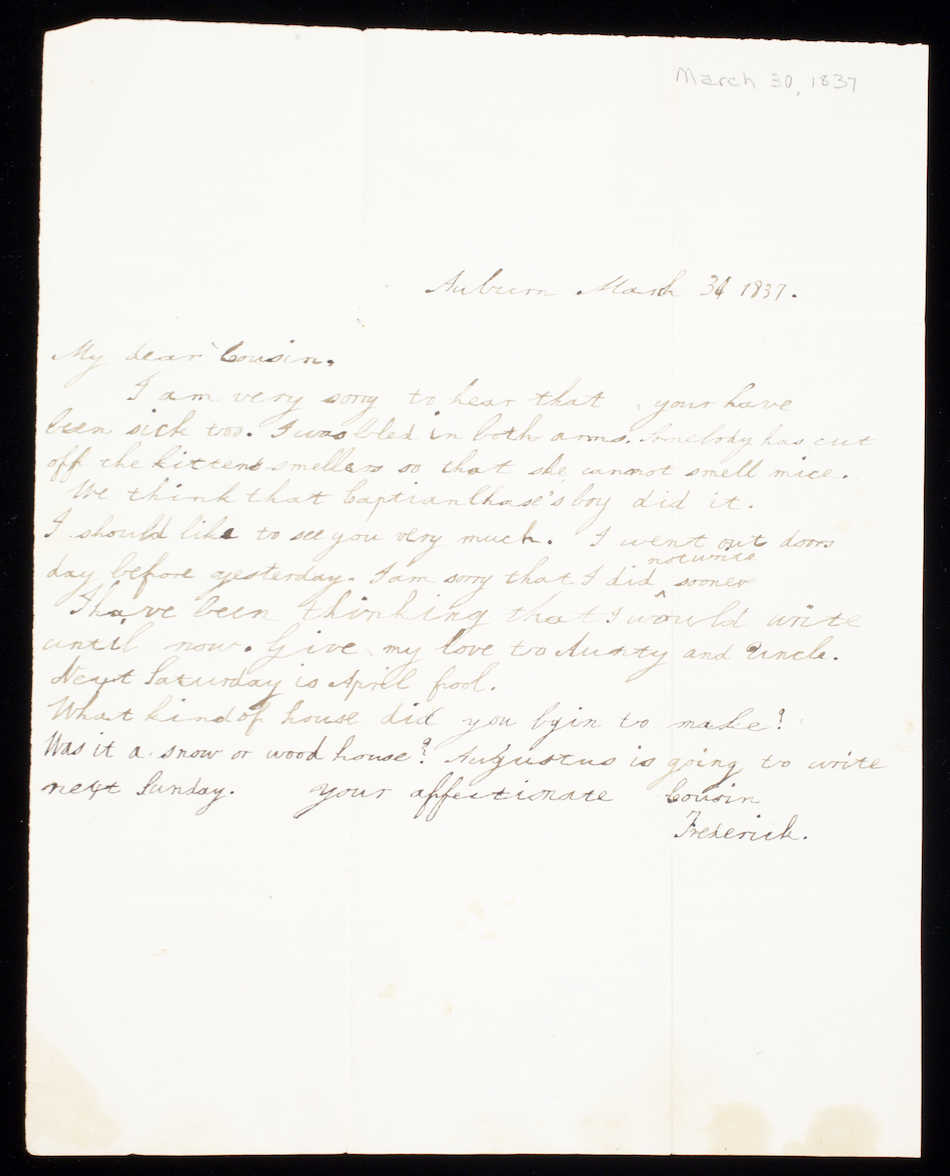 March 30, 1837
Auburn March 30 1837.
My dear Cousin.
I am very sorry to hear that your have
been sick too. I was bled in both arms. Somebody has cut
off the kittens smellers so that she cannot smell mice.
We think that Captian Chase's boy did it.
I should like to see you very much. I went out doors
not write
day before yesterday. I am sorry that I did ^ sooner
I have been thinking that I would write
until now. Give my love too Aunty and Uncle.
Next Saturday is April fool.
What kind of house did you byin to make?
Was it a snow or wood house? Augustus is going to write
next Sunday. your affectionate Cousin
Frederick.